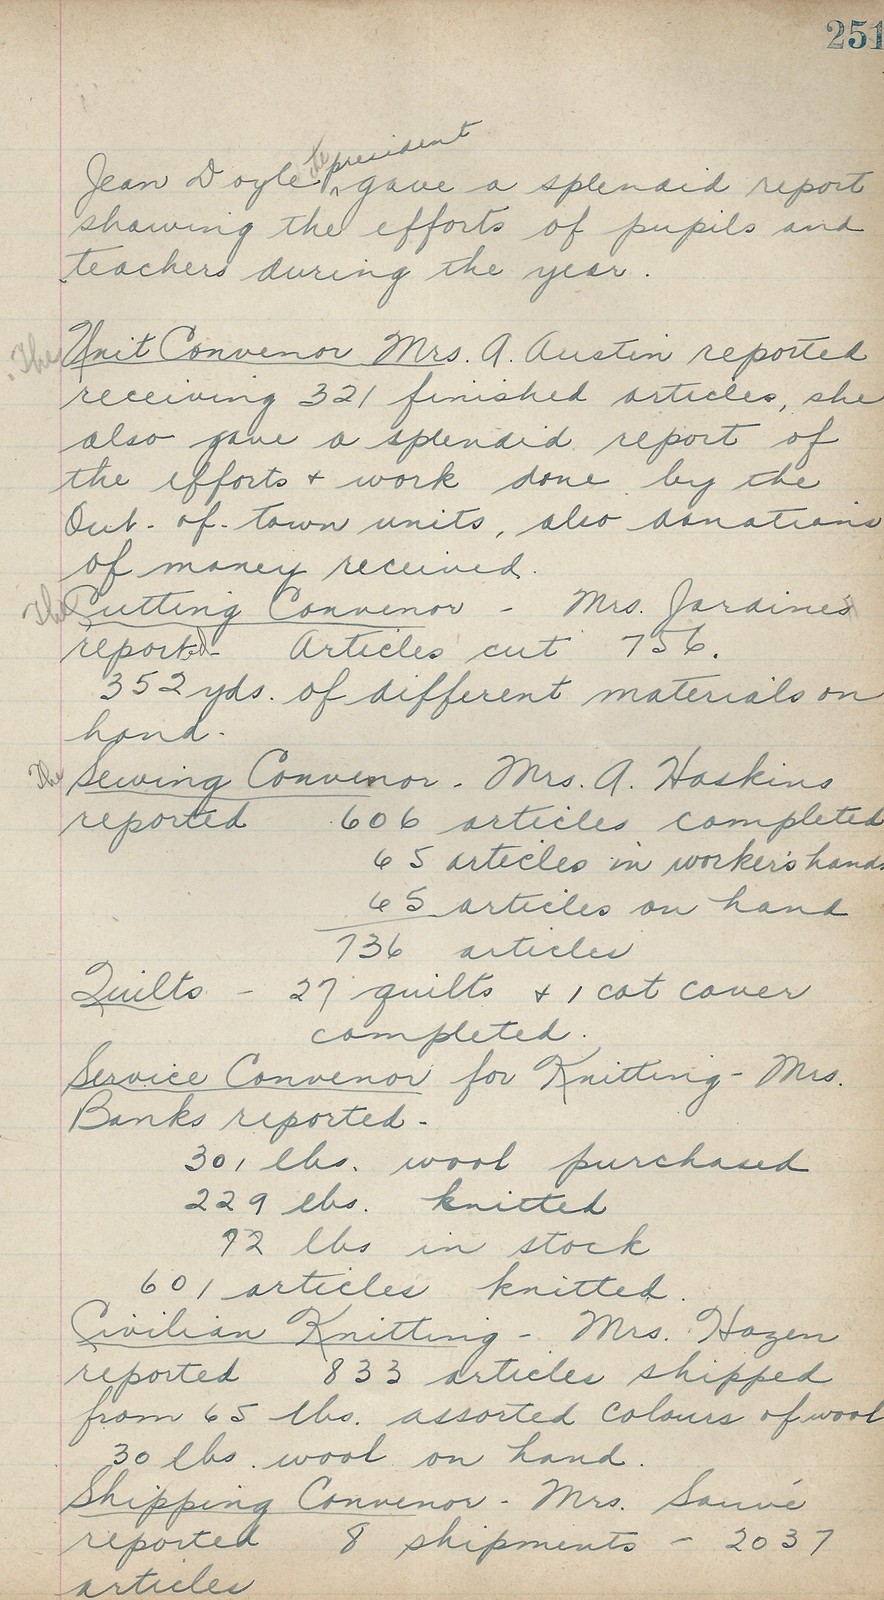 251
the president
Jean Doyle ^ gave a splendid report
showing the efforts of pupils and
teachers during the year.
The Unit Convenor Mrs. A. Austin reported
receiving 321 finished articles, she
also gave a splendid report of
the efforts + work done by the
Out-of-town units, also donations
of money received.
The Cutting Convenor - Mrs. Jardines
reported - Articles cut 756.
352 yds. of different materials on
hand.
The Sewing Convenor - Mrs. A. Haskins
reported 606 articles completed
65 articles in worker's hands
65 articles on hand
736 articles
Quilts - 27 quilts + 1 cot cover
completed.
Service Convenor for Knitting - Mrs.
Banks reported -
301 lbs. wool purchased
229 lbs. knitted
72 lbs in stock
601 articles knitted.
Civilian Knitting - Mrs. Hazen
reported 833 articles shipped
from 65 lbs. assorted colours of wool
30 lbs. wool on hand.
Shipping Convenor - Mrs. Sauvé
reported 8 shipments - 2037
articles